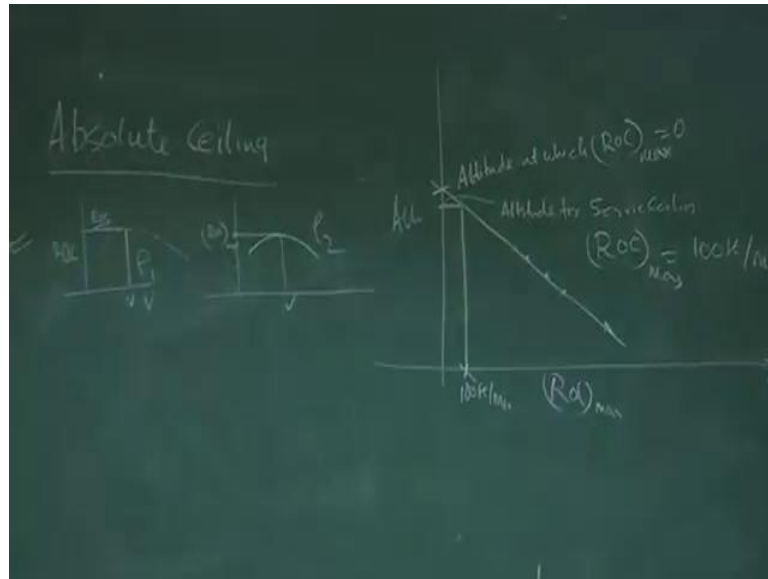 Absolute Ceiling
ROC
ρ1
V V
ρ2
V
Altitude at which (ROC)max = 0
Alt.
Altitude for Service Ceiling
(ROC)max = 100ft/m
100ft/min
(ROC)max